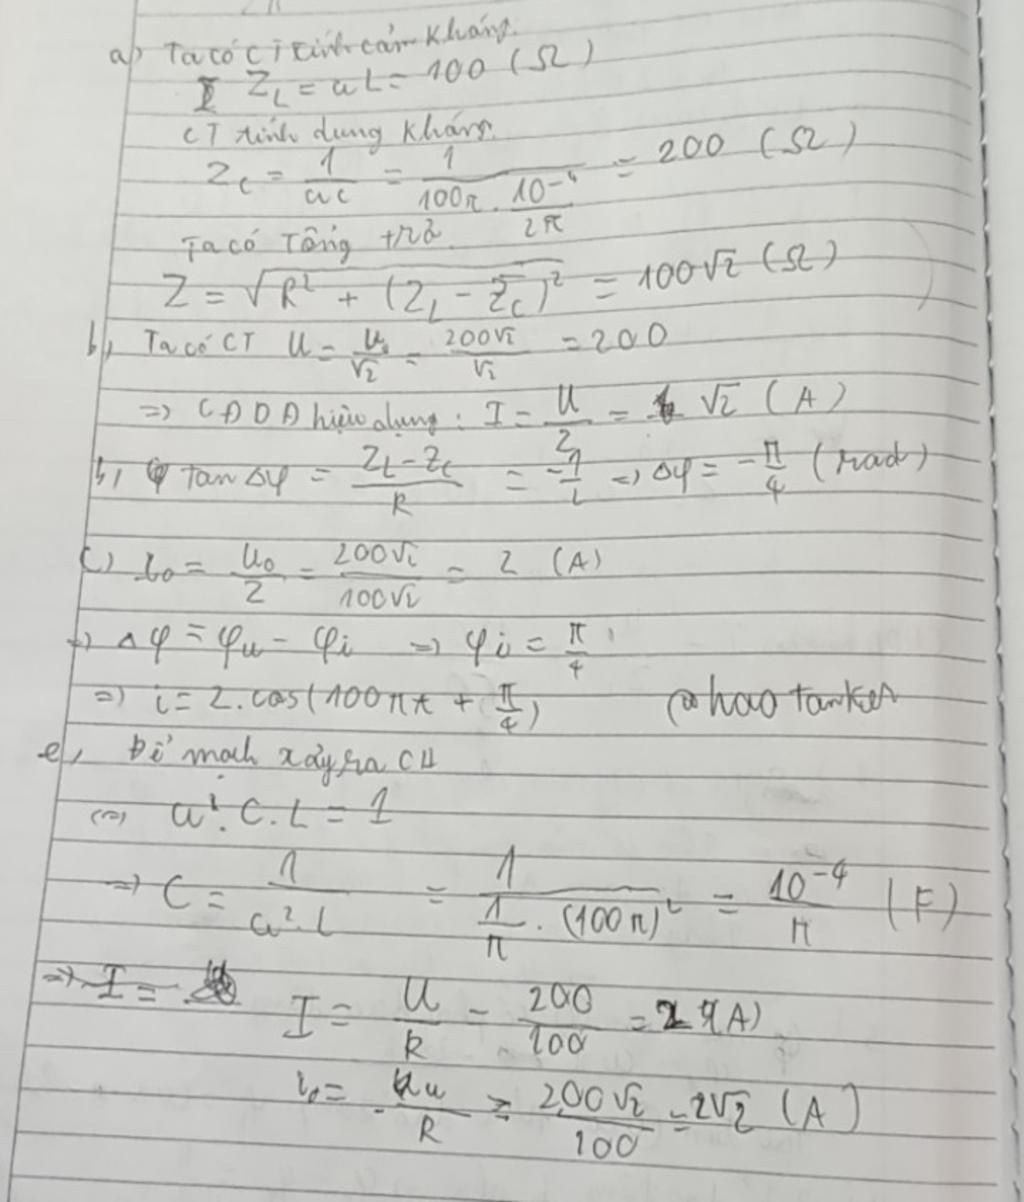 a) Ta có CT tính cảm kháng.
Z_L = ωL = 100 (Ω)
CT tính dung kháng.
Z_C = 1/ωC = 1/(100π . 10^-4/2π) = 200 (Ω)
Ta có Tổng trở.
Z = √(R² + (Z_L - Z_C)²) = 100√2 (Ω)
b, Ta có CT U = U₀/√2 = 200√2/√2 = 200
=> CĐDĐ hiệu dụng: I = U/Z = √2 (A)
b, tan Δφ = (Z_L - Z_C)/R = -1/1 => Δφ = -π/4 (rad)
C) i₀ = U₀/Z = 200√2/100√2 = 2 (A)
=> Δφ = φu - φi => φi = π/4
=> i = 2.cos(100πt + π/4) @hao tanker
e, Để mạch xảy ra CH
<=> ω². C. L = 1
=> C = 1/(ω². L) = 1/(1/π . (100π)²) = 10^-4/π (F)
=> I =
I = U/R = 200/100 = 2 (A)
i₀ = /R = 200√2/100 = 2√2 (A)